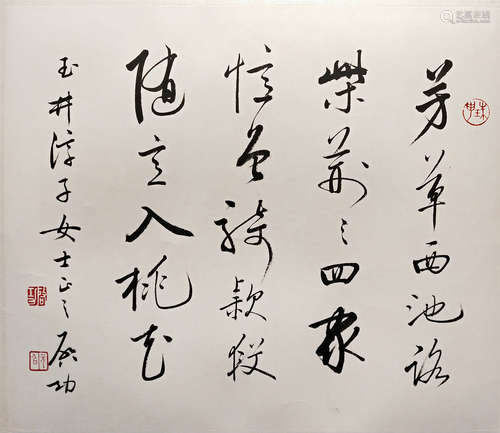 芳草西池路
柴荆三四家
憶曾騎款段
随意入桃花
玉井淳子女士正之 启功